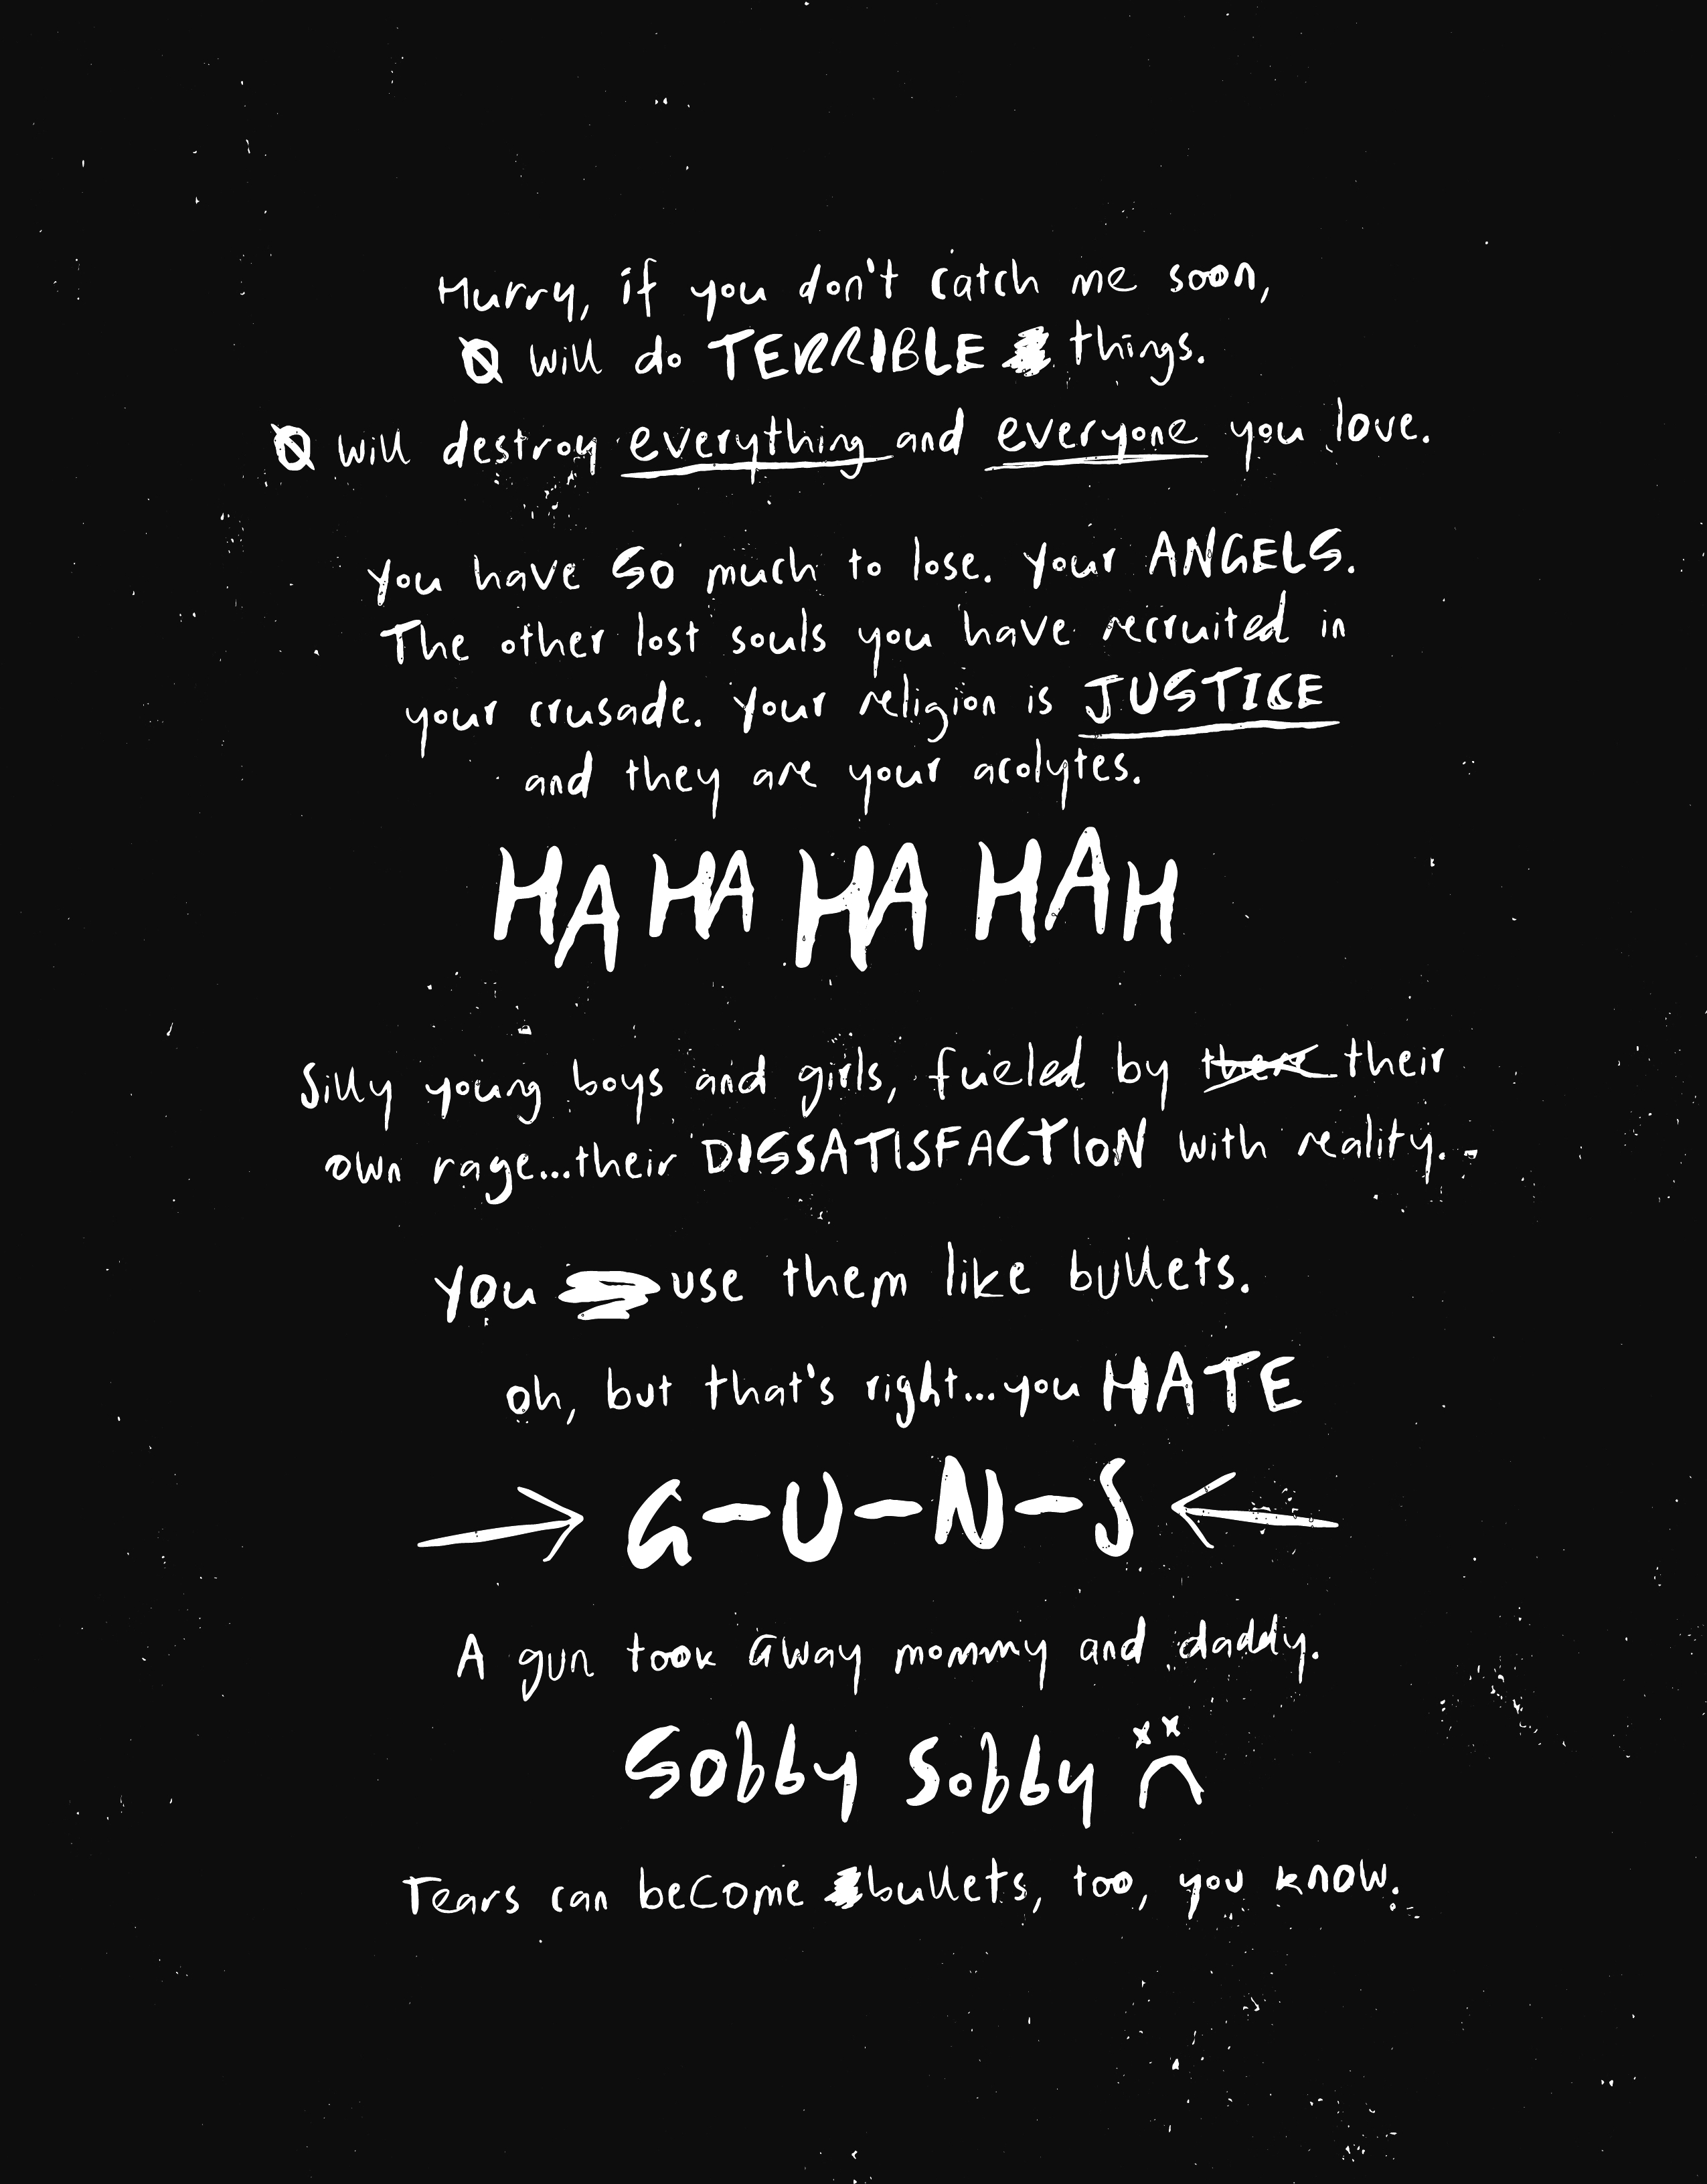 Hurry, if you don't catch me soon,
Ø will do TERRIBLE things.
Ø will destroy everything and everyone you love.
You have SO much to lose. Your ANGELS.
The other lost souls you have recruited in
your crusade. Your religion is JUSTICE
and they are your acolytes.
HA HA HA HAH
Silly young boys and girls, fueled by there their
own rage...their DISSATISFACTION with reality.
You use them like bullets.
Oh, but that's right...you HATE
→ G-U-N-S ←
A gun took away mommy and daddy.
Sobby Sobby
Tears can become bullets, too, you know.